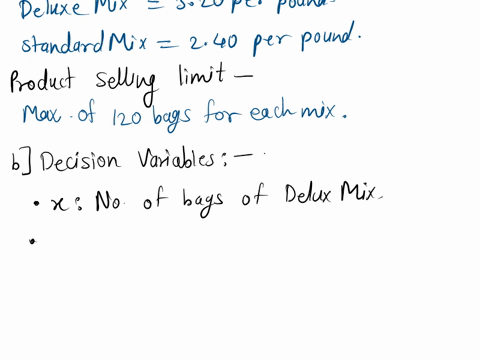 Deluxe Mix = 3.20 per pound.
standard Mix = 2.40 per pound.
Product selling limit —
Max. of 120 bags for each mix.
b] Decision Variables: —
• x: No. of bags of Delux Mix.
•